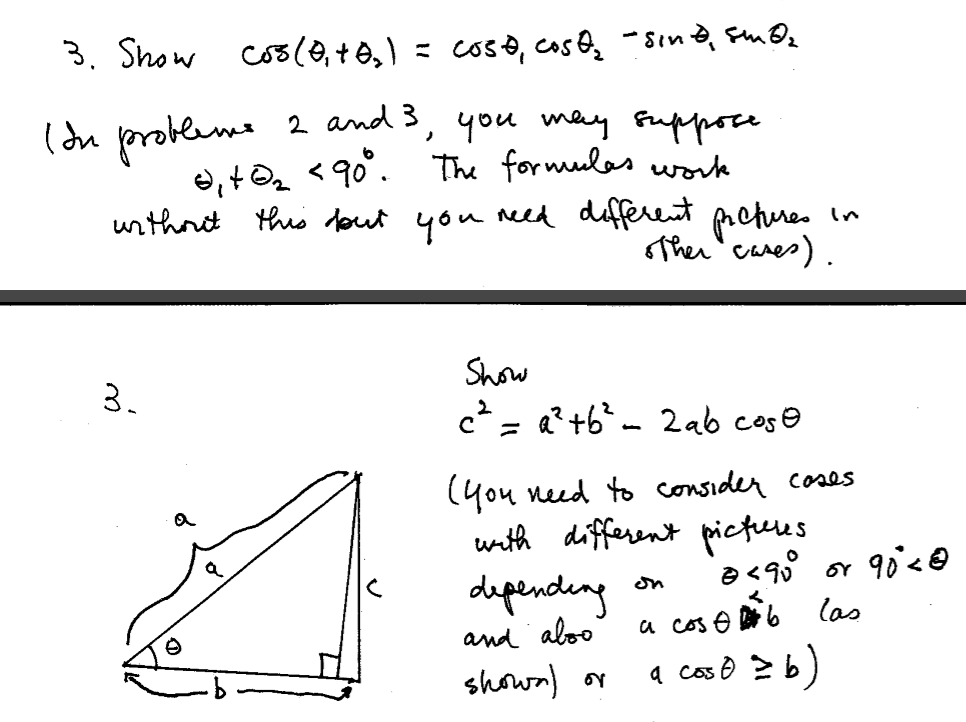 3. Show cos(θ₁+θ₂) = cosθ₁ cosθ₂ - sinθ₁ sinθ₂
(In problems 2 and 3, you may suppose
θ₁+θ₂ < 90°. The formulas work
without this but you need different pictures in
other cases).
Show
3.
c² = a²+b² - 2ab cosθ
(you need to consider cases
with different pictures
depending on θ<90° or 90°<θ
and also a cosθ < b (as
shown) or a cosθ ≥ b)
a
a
c
θ
b